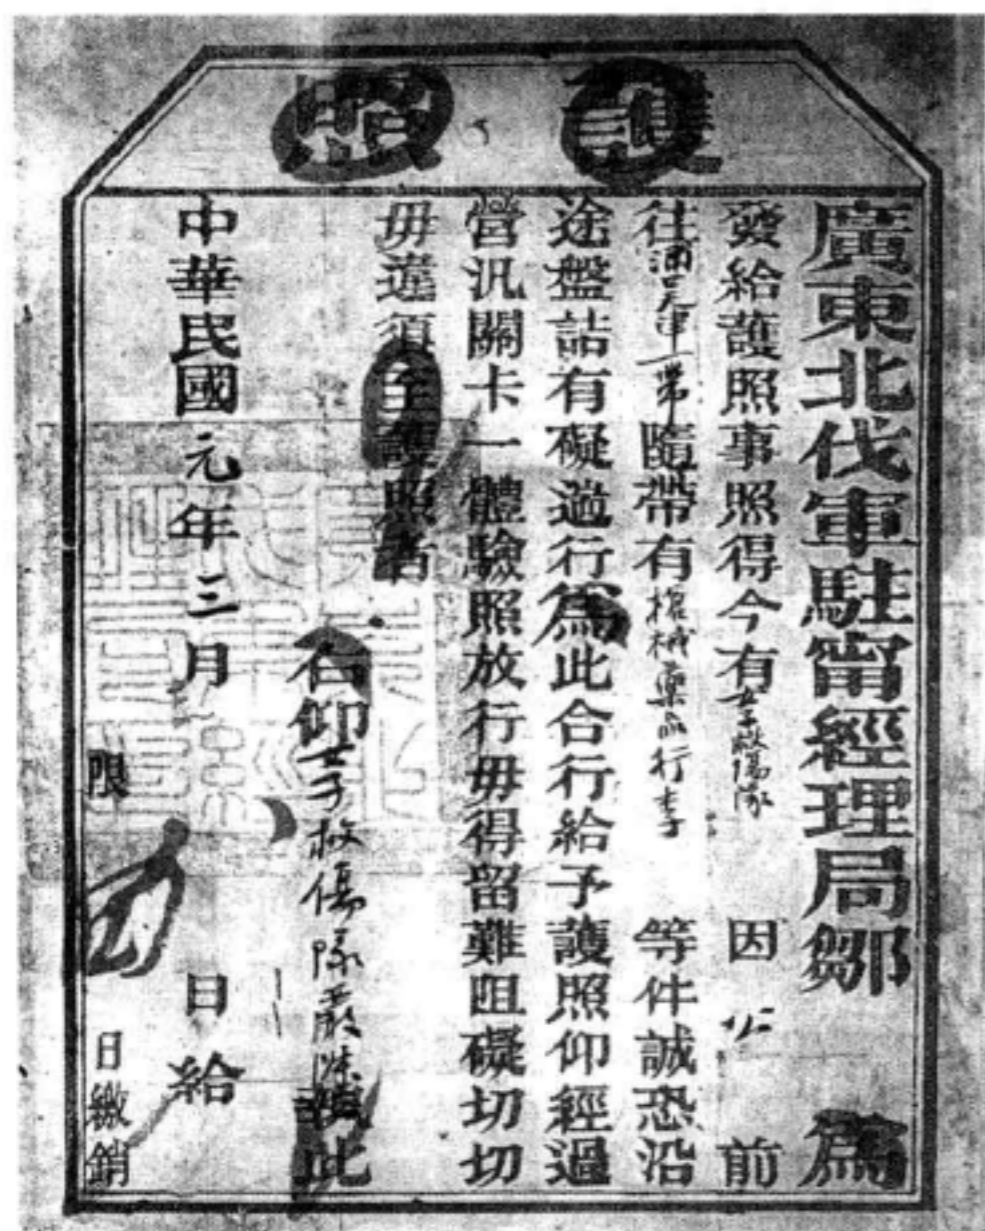 護照
廣東北伐軍駐甯經理局鄒 爲
發給護照事照得今有女子救傷隊 因 公 前
往浦口天津一帶隨帶有槍械藥品行李 等件誠恐沿
途盤詰有礙遄行爲此合行給予護照仰經過
營汛關卡一體驗照放行毋得留難阻礙切切
毋違須至護照者
右仰女子救傷隊 此
中華民國元年三月 日給
限 日繳銷